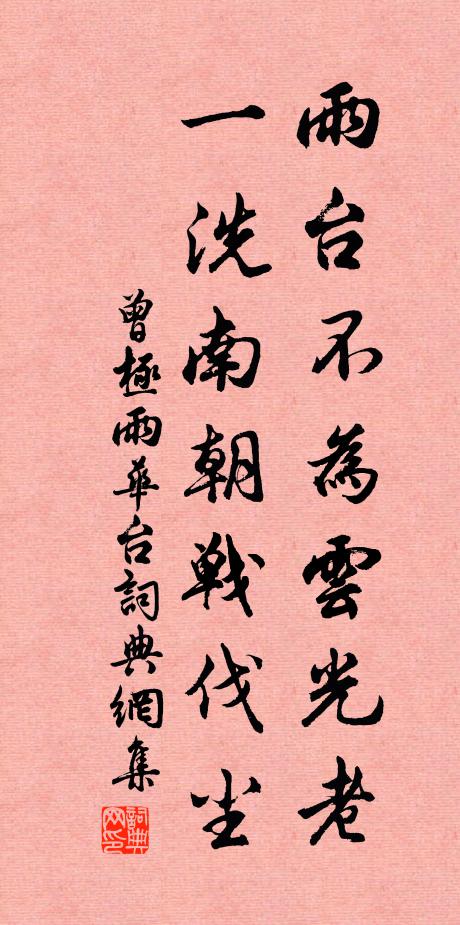 雨台不為雲光老
一洗南朝戰伐尘
曾極雨華台詞典網集
詞典网印